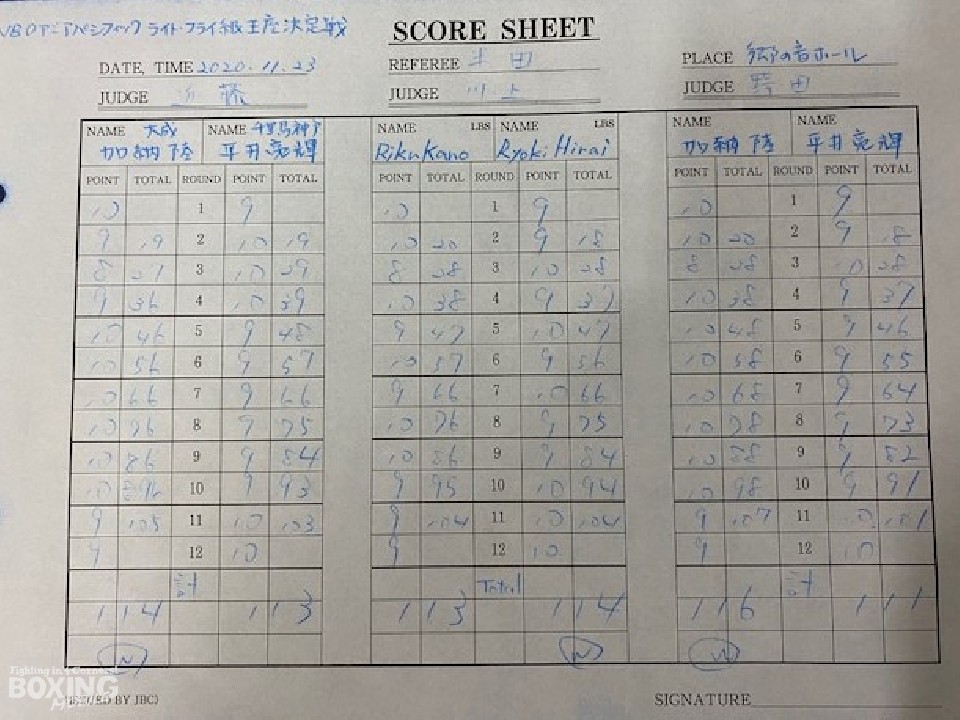 WBOアジアパシフィック ライト・フライ級王座決定戦
SCORE SHEET
DATE, TIME 2020.11.23
REFEREE 半田
PLACE 郷の音ホール
JUDGE 近藤
JUDGE 川上
JUDGE 野田
NAME 大成 NAME 千里馬神戸
加納 陸 平井亮輝
NAME LBS NAME LBS
Riku Kano Ryoki Hirai
NAME NAME
加納 陸 平井亮輝
POINT TOTAL ROUND POINT TOTAL POINT TOTAL ROUND POINT TOTAL POINT TOTAL ROUND POINT TOTAL
10 1 9 10 1 9 10 1 9
9 19 2 10 19 10 20 2 9 18 10 20 2 9 18
8 27 3 10 29 8 28 3 10 28 8 28 3 10 28
9 36 4 10 39 10 38 4 9 37 10 38 4 9 37
10 46 5 9 48 9 47 5 10 47 10 48 5 9 46
10 56 6 9 57 10 57 6 9 56 10 58 6 9 55
10 66 7 9 66 9 66 7 10 66 10 68 7 9 64
10 76 8 9 75 10 76 8 9 75 10 78 8 9 73
10 86 9 9 84 10 86 9 9 84 10 88 9 9 82
10 96 10 9 93 9 95 10 10 94 10 98 10 9 91
9 105 11 10 103 9 104 11 10 104 9 107 11 10 101
9 12 10 9 12 10 9 12 10
計 Total 計
114 113 113 114 116 111
W W W
(ISSUED BY JBC)
SIGNATURE
Fighting in a Corner!
BOXING